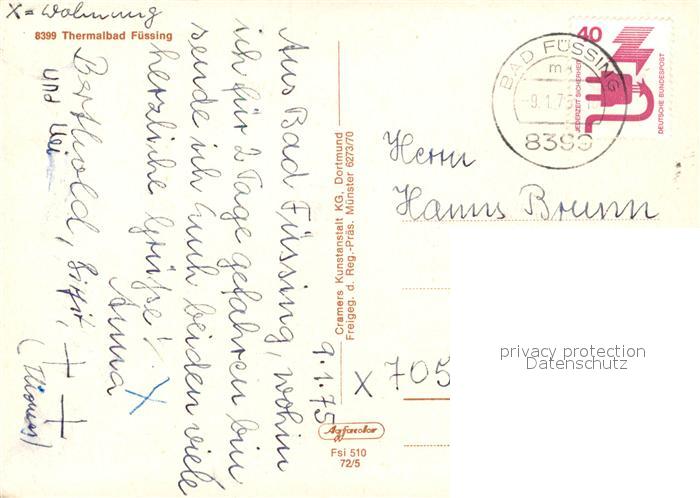 X = Wohnung
8399 Thermalbad Füssing
Aus Bad Füssing, wohin
ich für 2 Tage gefahren bin
sende ich Euch beiden viele
herzliche Grüße!
Anna X
Berthold,
und
9.1.75
(Thomas)
Cramers Kunstanstalt KG, Dortmund
Freigeg. d. Reg.-Präs. Münster 6273/70
Agfacolor
Fsi 510
72/5
40
JEDERZEIT SICHERHEIT
DEUTSCHE BUNDESPOST
BAD FÜSSING
-9.1.75
8399
Herrn
Hanns Brunn
X 705
privacy protection
Datenschutz